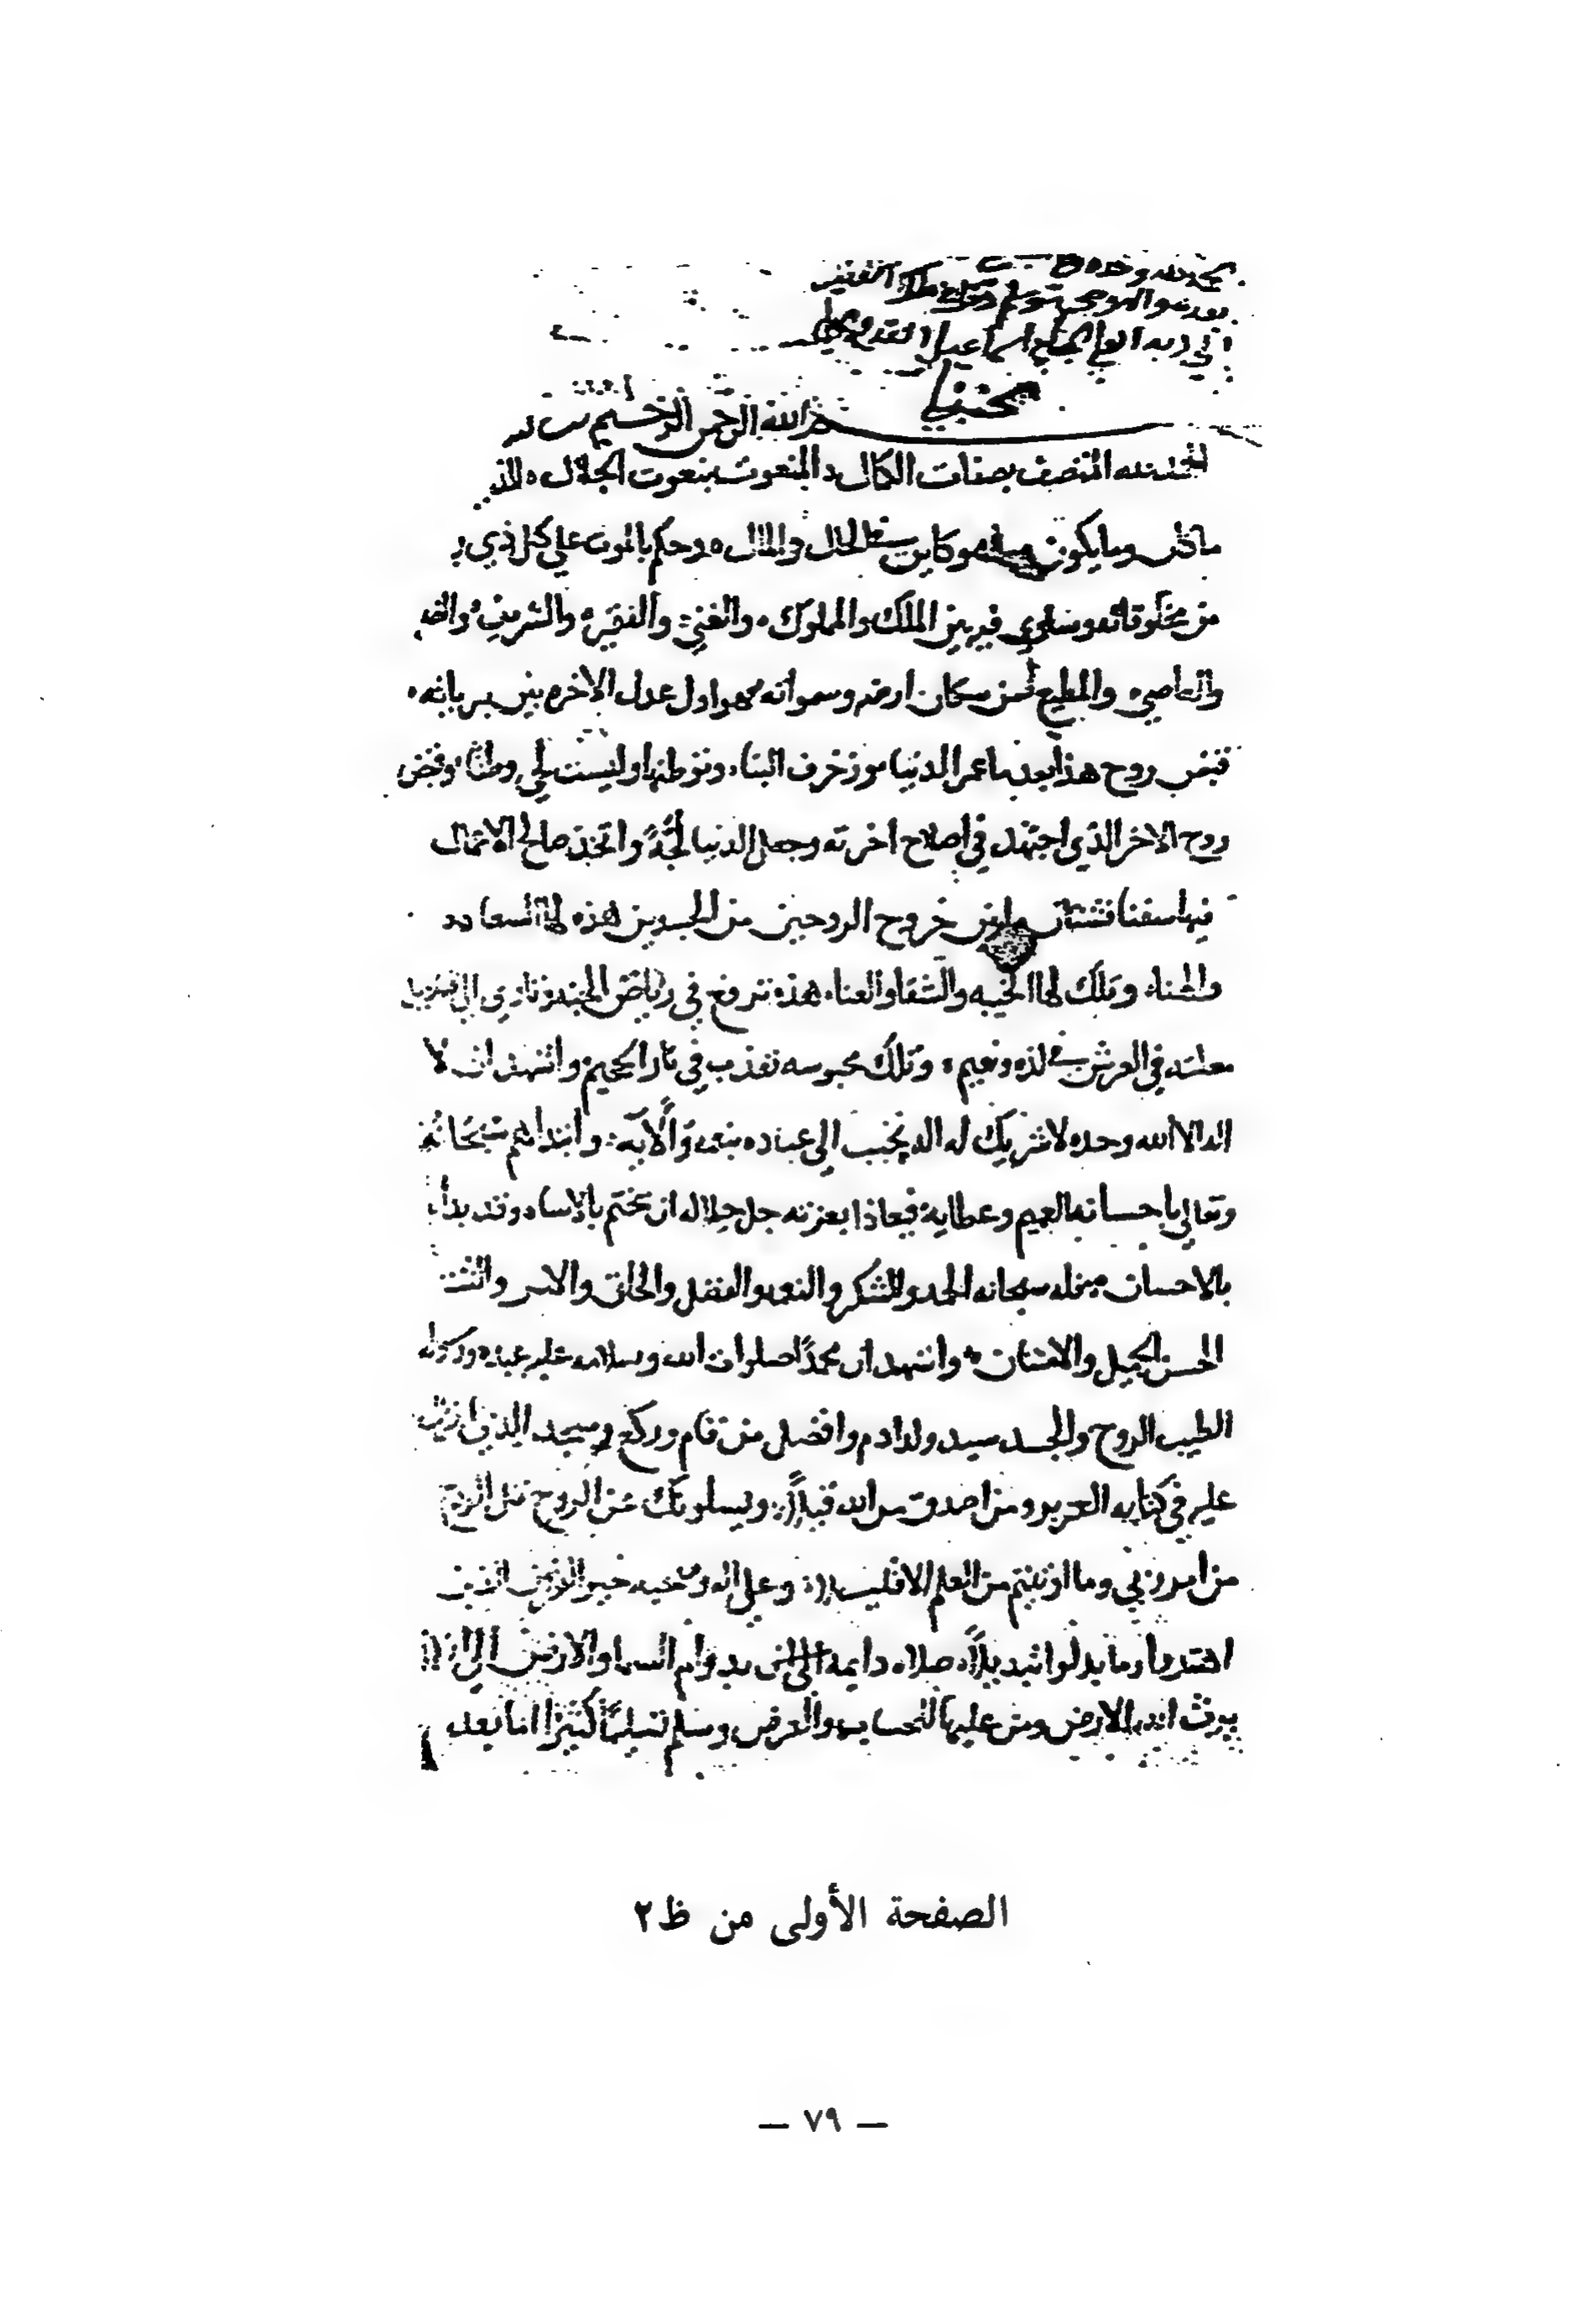 الحمد لله وحده
الحنبلي
بسم الله الرحمن الرحيم
الحمد لله المتصف بصفات الكمال والمنعوت بنعوت الجلال الذ
ما كان وما يكون وما هو كاين في الحال والمال وحكم بالموت علي كل ذي ر
من مخلوقاته وساوي فيه بين الملك والمملوك والغني والفقير والشريف والضـ
والعاصي والمطيع من سكان ارضه وسمواته فهو اول عدل الاخره بين برياته
قبض روح هذا بعد ما عمر الدنيا بزخرف البناء وتوطنها وليست لحي وطنا وقبض
روح الاخر الذي اجتهد في اصلاح اخرته وجعل الدنيا لجةً واتخذ صالح الاعمال
فيها سفنا فشتان ما بين خروج الروحين من الجسدين هذه لها السعاده
والهناء وتلك لها الخيبه والشقا والعناء هذه ترفع في رياض الجنه وتاوي الي قناديل
معلقه في العرش في لذه ونعيم وتلك محبوسه تعذب في نار الجحيم واشهد ان لا
اله الا الله وحده لا شريك له اله تحبب الي عباده بنعمه وآلايه وابتداهم سبحانه
وتعالي باحسانه العميم وعطايه فمعاذا بعزته جل جلاله ان يختم بالاساه وقد بدأ
بالاحسان فله سبحانه الحمد والشكر والنعمه والفضل والخلق والامر والثنا
الحسن الجميل والامتنان واشهد ان محمدًا صلوات الله وسلامه عليه عبده ورسوله
الطيب الروح والجسد سيد ولد ادم وافضل من قام وركع وسجد الذي انزل
عليه في كتابه العزيز ومن اصدق من الله قيلاً ويسلونك عن الروح قل الروح
من امر ربي وما اوتيتم من العلم الا قليلا وعلي اله وصحبه خير الفريقين الذين
اهتدوا وما بدلوا تبديلاً صلاه دايمه بدوام السما والارض الي ان
يرث الله الارض ومن عليها للحساب والعرض وسلم تسليمًا كثيرًا اما بعد
الصفحة الأولى من ظ٢
— ٧٩ —